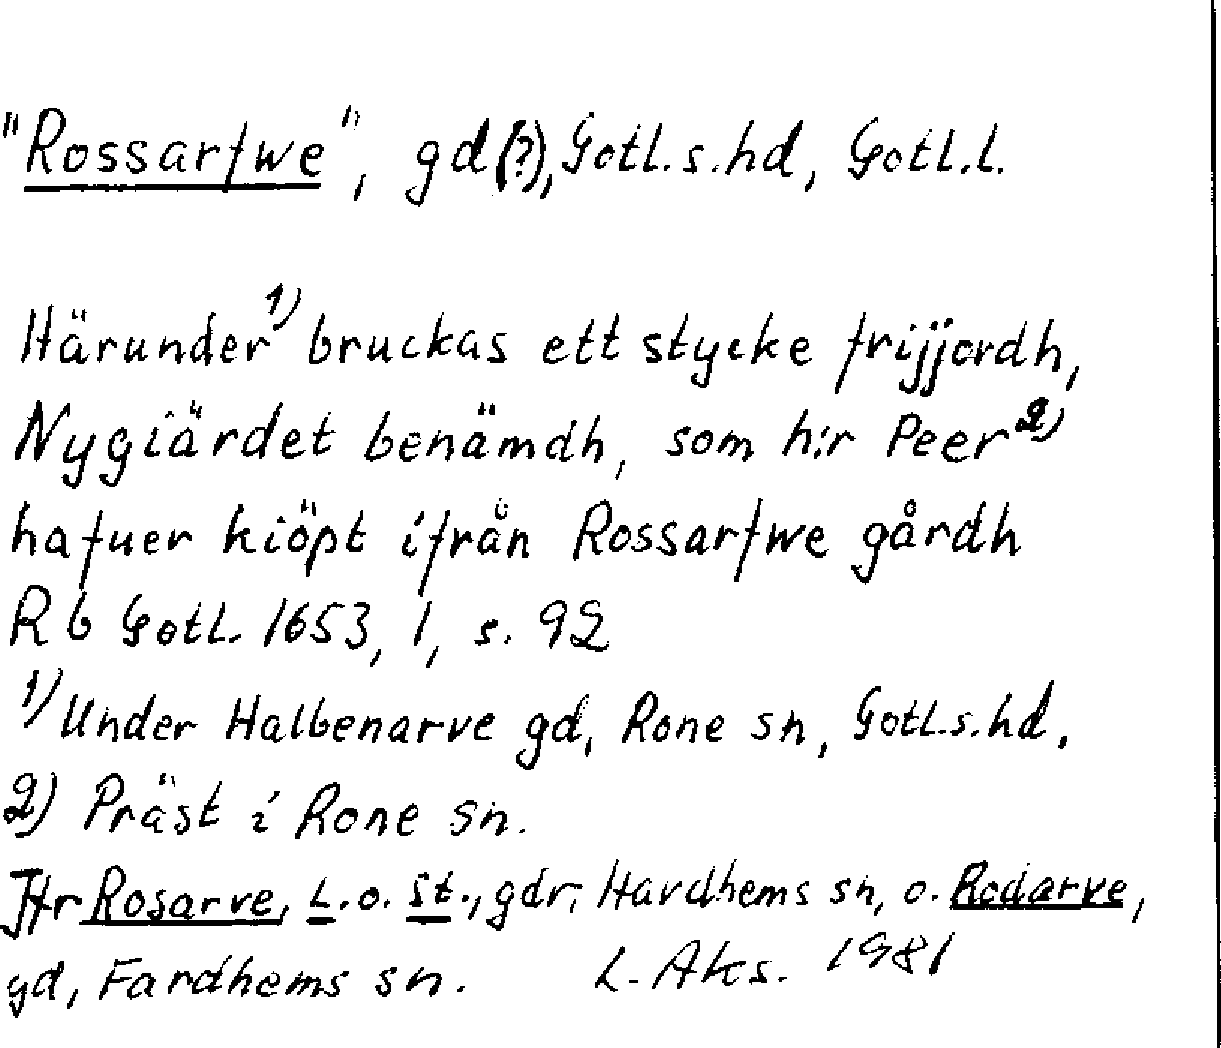 "Rossarfwe", gd(?), Gotl.s.hd, Gotl.l.
Härunder 1) bruckas ett stycke frijjordh,
Nygiärdet benämdh, som h:r Peer 2)
hafuer kiöpt ifrån Rossarfwe gårdh
Rb Gotl. 1653, 1, s. 92
1) Under Halbenarve gd, Rone sn, Gotl.s.hd.
2) Präst i Rone sn.
Jfr Rosarve, L. o. St., gdr, Havdhems sn, o. Rodarve,
gd, Fardhems sn. L. Aks. 1981